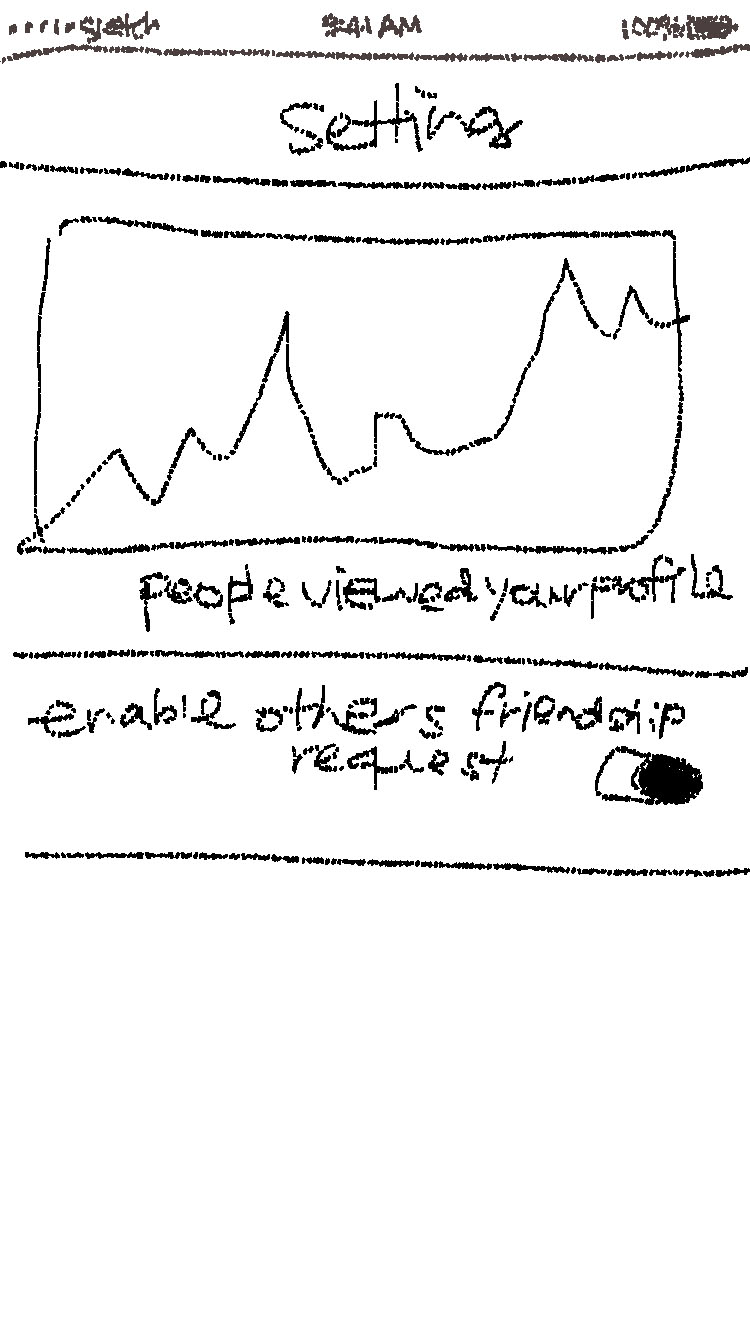 sketch 9:41 AM 100%
setting
people viewed your profile
enable others friendship
request